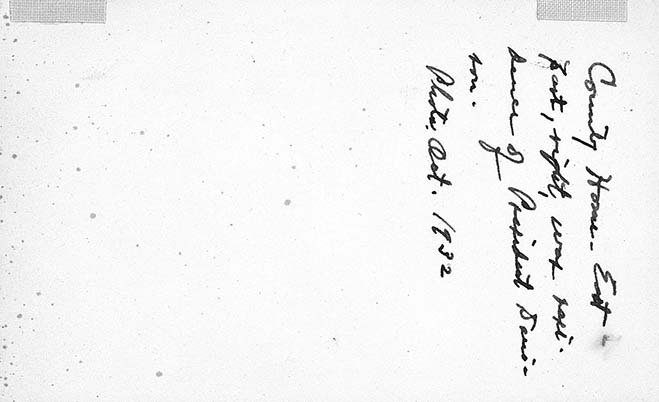 County Home - East
part, right, was resi-
dence of President Davis-
son.
Photo. Oct. 1932